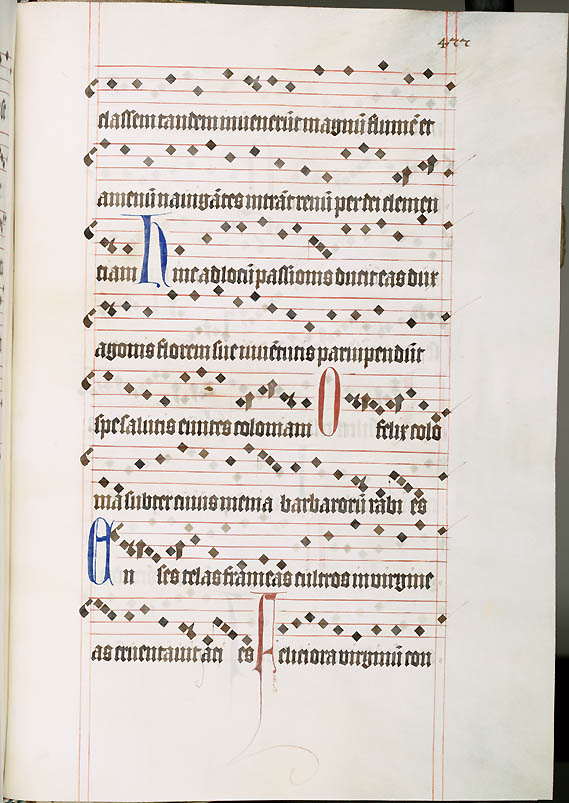 477
classem tandem inuenerūt magnū flumē et
amenū nauigātes intrāt renū per dei clemen
ciam Hinc ad locū passionis ducit eas dux
agonis florem sue iuuētutis paruipendūt
spe salutis euntes coloniam O felix colo
nia subter cuius menia barbarorū rabi es
En ses telas frameas cultros in virgine
as cruentauit aci es Feliciora virginū con